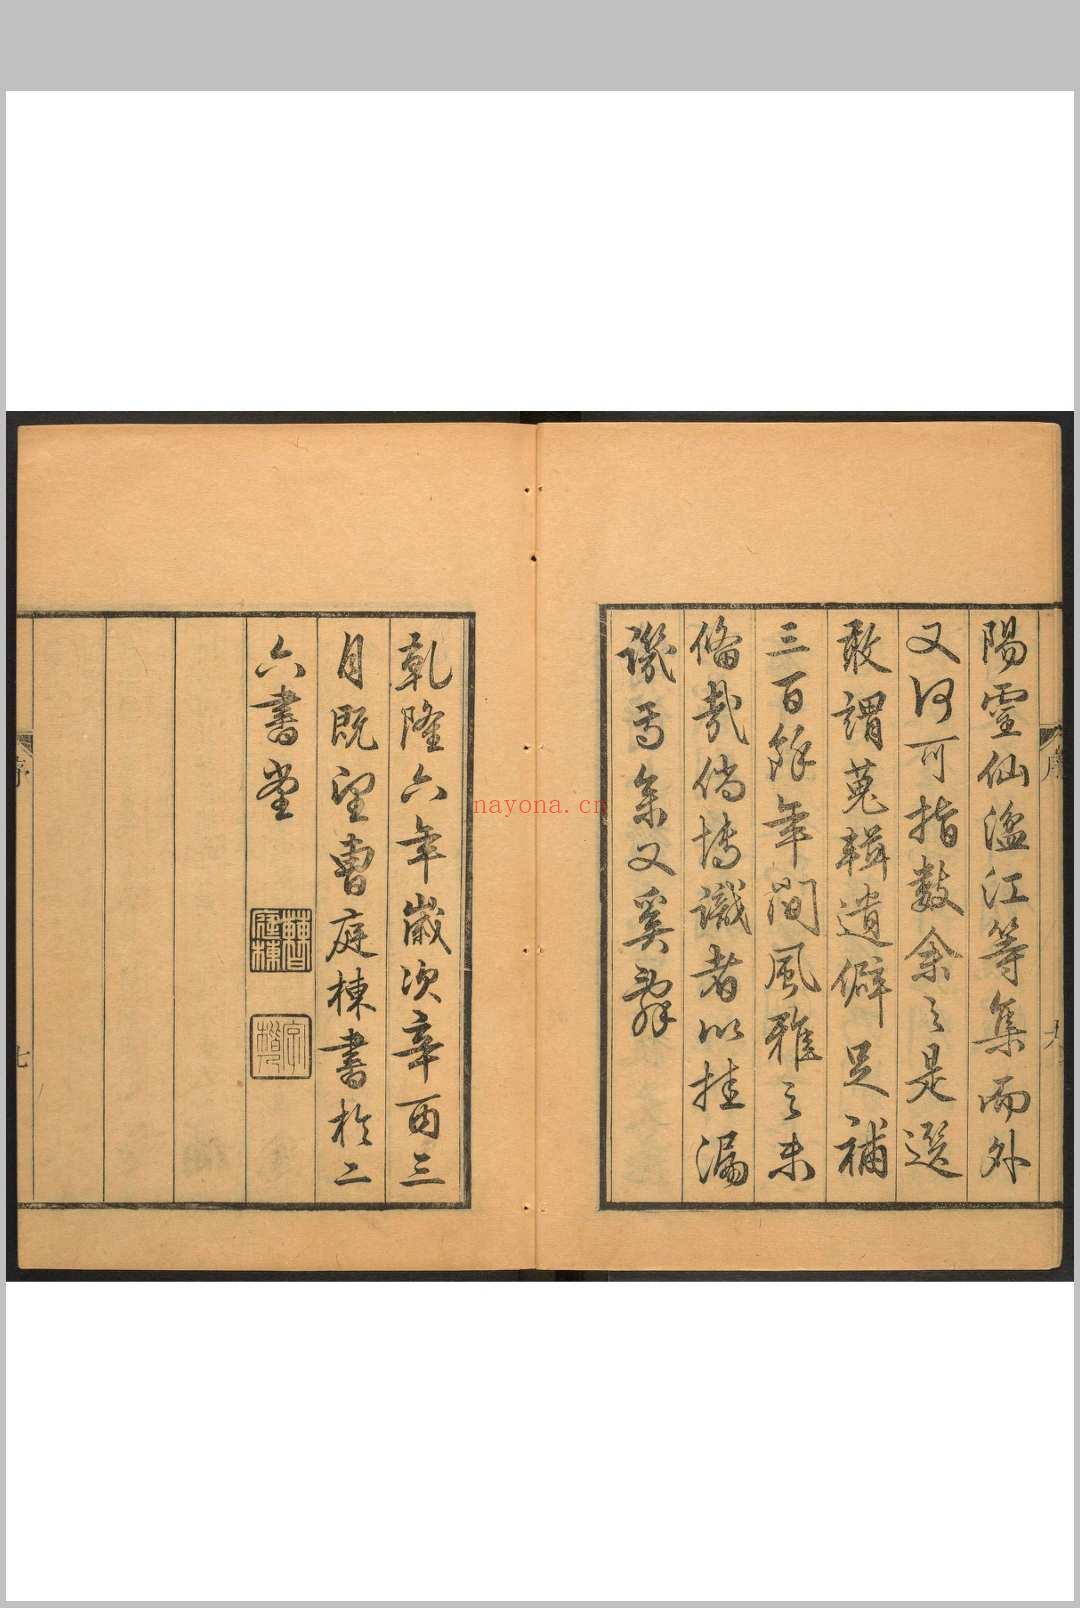 陽靈仙溫江等集而外
又何可指數余之是選
敢謂蒐輯遺僻足補
三百餘年間風雅之未
備哉倘博識者以挂漏
譏焉余又奚辭
乾隆六年歲次辛酉三
月既望曹庭棟書於二
六書堂
曹庭棟
序
七
nayona.cn